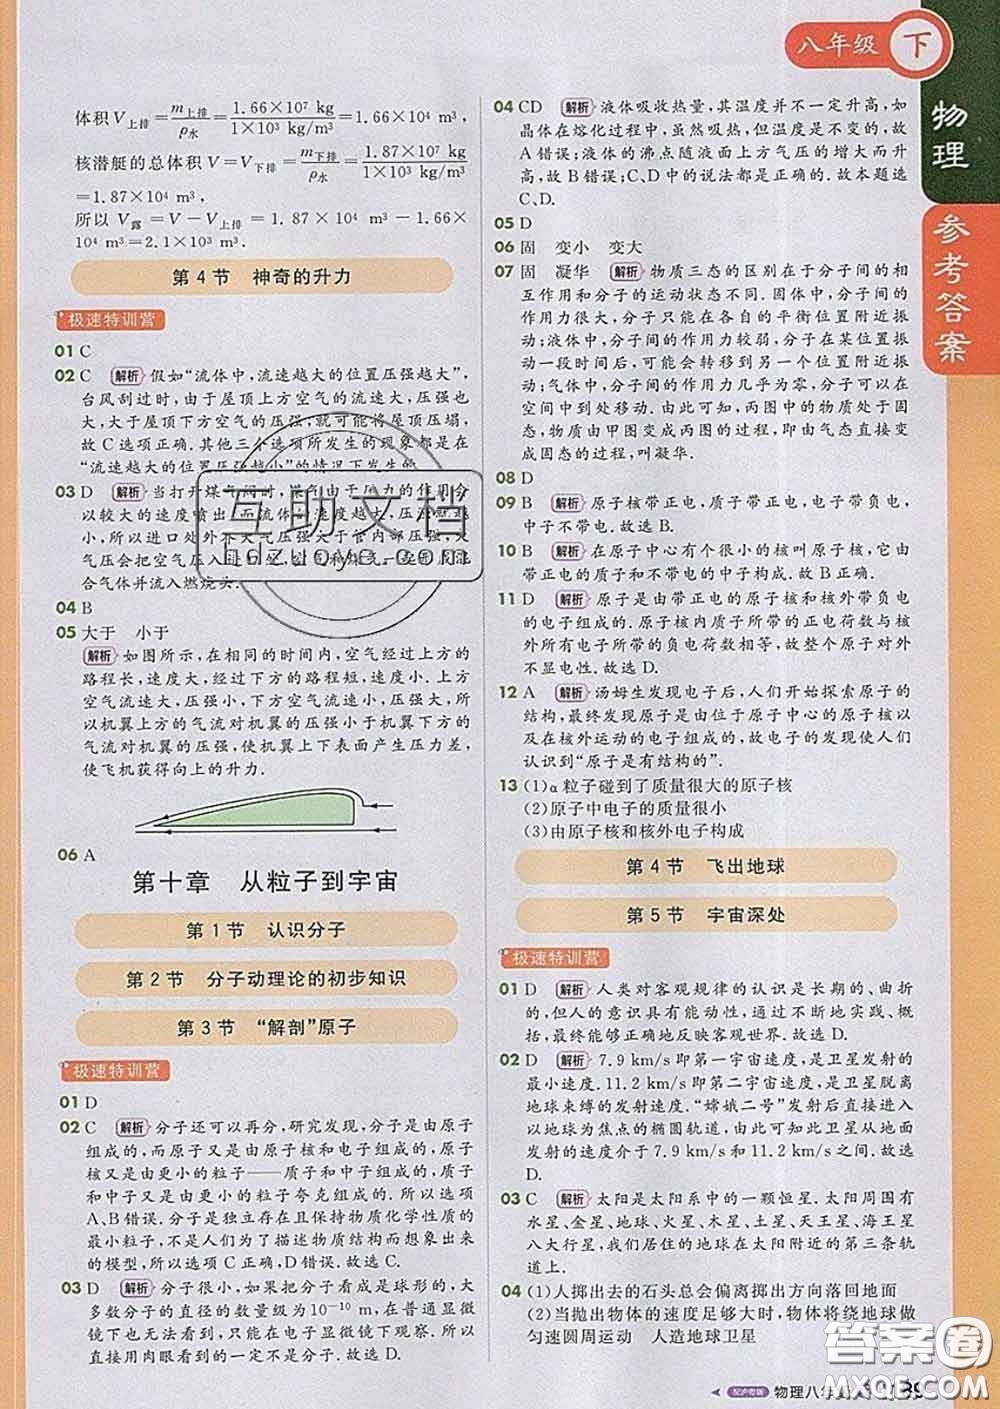 八年级 下
物理
参考答案
体积V上排=m上排/ρ水=1.66×10⁷ kg/1×10³ kg/m³=1.66×10⁴ m³,
核潜艇的总体积V=V下排=m下排/ρ水=1.87×10⁷ kg/1×10³ kg/m³
=1.87×10⁴ m³,
所以 V露=V-V上排=1.87×10⁴ m³-1.66×
10⁴ m³=2.1×10³ m³.
第4节 神奇的升力
极速特训营
01 C
02 C 解析 假如“流体中,流速越大的位置压强越大”,
台风刮过时,由于屋顶上方空气的流速大,压强也
大,大于屋顶下方空气的压强;就可能将屋顶压塌,
故C选项正确.其他三个选项所发生的现象都是在
“流速越大的位置压强越小”的情况下发生的.
03 D 解析 当打开煤气阀时,煤气由于压力的作用
以较大的速度喷出
所以进口处外
气压会把空气压入进口处
合气体并流入燃烧头.
04 B
05 大于 小于
解析 如图所示,在相同的时间内,空气经过上方的
路程长,速度大,经过下方的路程短,速度小.上方
空气流速大,压强小,下方空气流速小,压强大,所
以机翼上方的气流对机翼的压强小于机翼下方气
流对机翼的压强,使机翼上下表面产生压力差,
使飞机获得向上的升力.
06 A
第十章 从粒子到宇宙
第1节 认识分子
第2节 分子动理论的初步知识
第3节 “解剖”原子
极速特训营
01 D
02 C 解析 分子还可以再分,研究发现,分子是由原子
组成的,而原子又是由质子、中子和电子组成,原子
核又是由更小的粒子——质子和中子组成的,质子
和中子又是由更小的粒子夸克组成的,所以选项
A、B错误.分子是独立存在且保持物质化学性质的
最小粒子,不是人们为了描述物质结构而想象出来
的模型,所以选项C正确,D错误.故选C.
03 D 解析 分子很小,如果把分子看成是球形的,大
多数分子的直径的数量级为10⁻¹⁰ m,在普通显微
镜下也无法看到,只有在电子显微镜下观察.所以
直接用肉眼看到的一定不是分子.故选D.
04 CD 解析 液体吸收热量,其温度不一定升高,如
晶体在熔化过程中,虽然吸热,但温度是不变的,故
A错误;液体的沸点随液面上方气压的增大而升
高,故B错误;C、D中的说法都是正确的.故本题选
C、D.
05 D
06 固 变小 变大
07 固 凝华 解析 物质三态的区别在于分子间的相
互作用和分子的运动状态不同.固体中,分子间的
作用力很大,分子只能在各自的平衡位置附近振
动;液体中,分子间的作用力较弱,分子在某位置振
动一段时间后,可能会转移到另一个位置附近振
动;气体中,分子间的作用力几乎为零,分子可以在
空间中到处移动.由此可知,丙图中的物质处于固
态,物质由甲图变成丙图的过程,即由气态直接变
成固态的过程,叫凝华.
08 D
09 B 解析 原子核带正电,质子带正电,电子带负电,
中子不带电.故选B.
10 B 解析 在原子中心有个很小的核叫原子核,它由
带正电的质子和不带电的中子构成.故B正确.
11 D 解析 原子是由带正电的原子核和核外带负电
的电子组成的.原子核内质子所带的正电荷数和核
外所有电子所带的负电荷数相等,故整个原子对外
不显电性.故选D.
12 A 解析 汤姆生发现电子后,人们开始探索原子的
结构,最终发现原子是由位于原子中心的原子核以
及在核外运动的电子组成的,故电子的发现使人们
认识到“原子是有结构的”.
13 (1)α粒子碰到了质量很大的原子核
(2)原子中电子的质量很小
(3)由原子核和核外电子构成
第4节 飞出地球
第5节 宇宙深处
极速特训营
01 D 解析 人类对客观规律的认识是长期的、曲折
的,但人的意识具有能动性,通过不断地实践、概
括,最终能够正确地反映客观世界.故选D.
02 D 解析 7.9 km/s即第一宇宙速度,是卫星发射的
最小速度.11.2 km/s即第二宇宙速度,是卫星脱离
地球束缚的发射速度.“嫦娥二号”发射后直接进入
以地球为焦点的椭圆轨道,由此可知卫星从地面
发射的速度介于7.9 km/s和11.2 km/s之间.故选
D.
03 C 解析 太阳是太阳系中的一颗恒星.太阳周围有
水星、金星、地球、火星、木星、土星、天王星、海王星
八大行星,我们居住的地球在太阳附近的第三条轨
道上.
04 (1)人掷出去的石头总会偏离掷出方向落回地面
(2)当抛出物体的速度足够大时,物体将绕地球做
匀速圆周运动 人造地球卫星
互助文档
答案圈
MXQE.COM
配沪粤版 物理八年 39